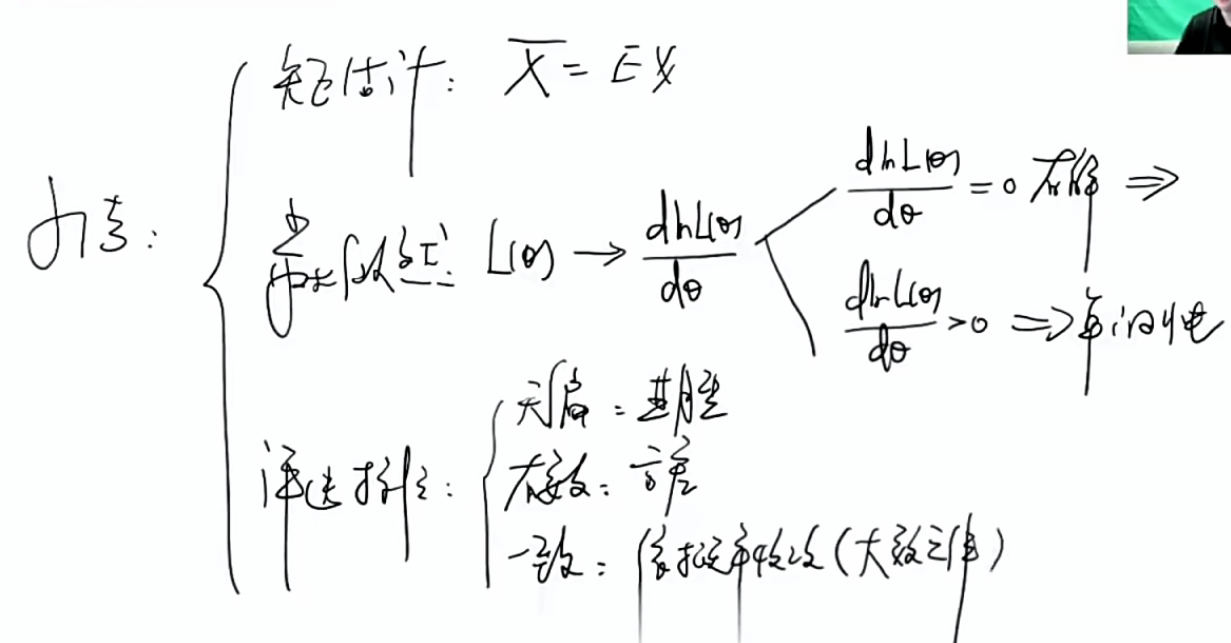 估计:
矩估计: X̄ = EX
最大似然估计: L(θ) → dlnL(θ)/dθ
dlnL(θ)/dθ = 0 有解 ⇒
dlnL(θ)/dθ > 0 ⇒ 单调性
评选标准:
无偏: 期望
有效: 方差
一致: 依概率收敛(大数定律)